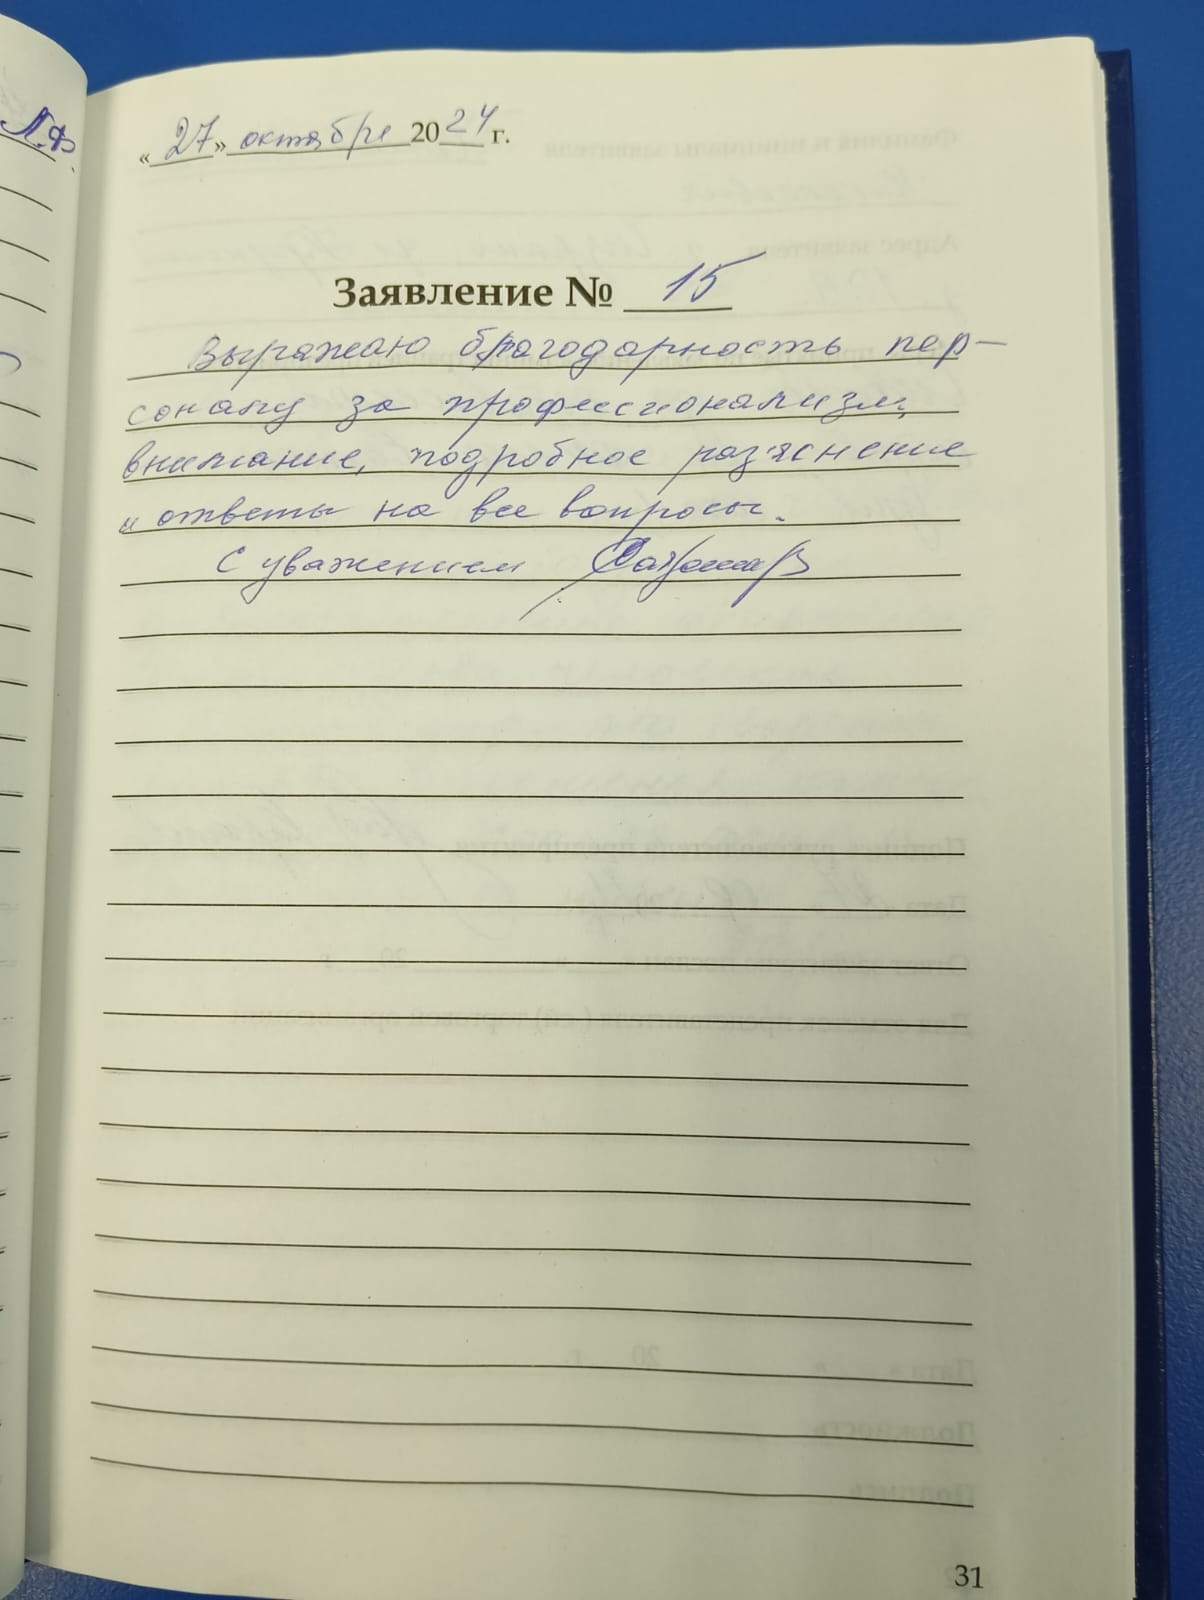 Л.Ф.
«27» октября 2024 г.
Заявление № 15
Выражаю благодарность пер-
соналу за профессионализм,
внимание, подробное разяснение
и ответы на все вопросы.
С уважением
31